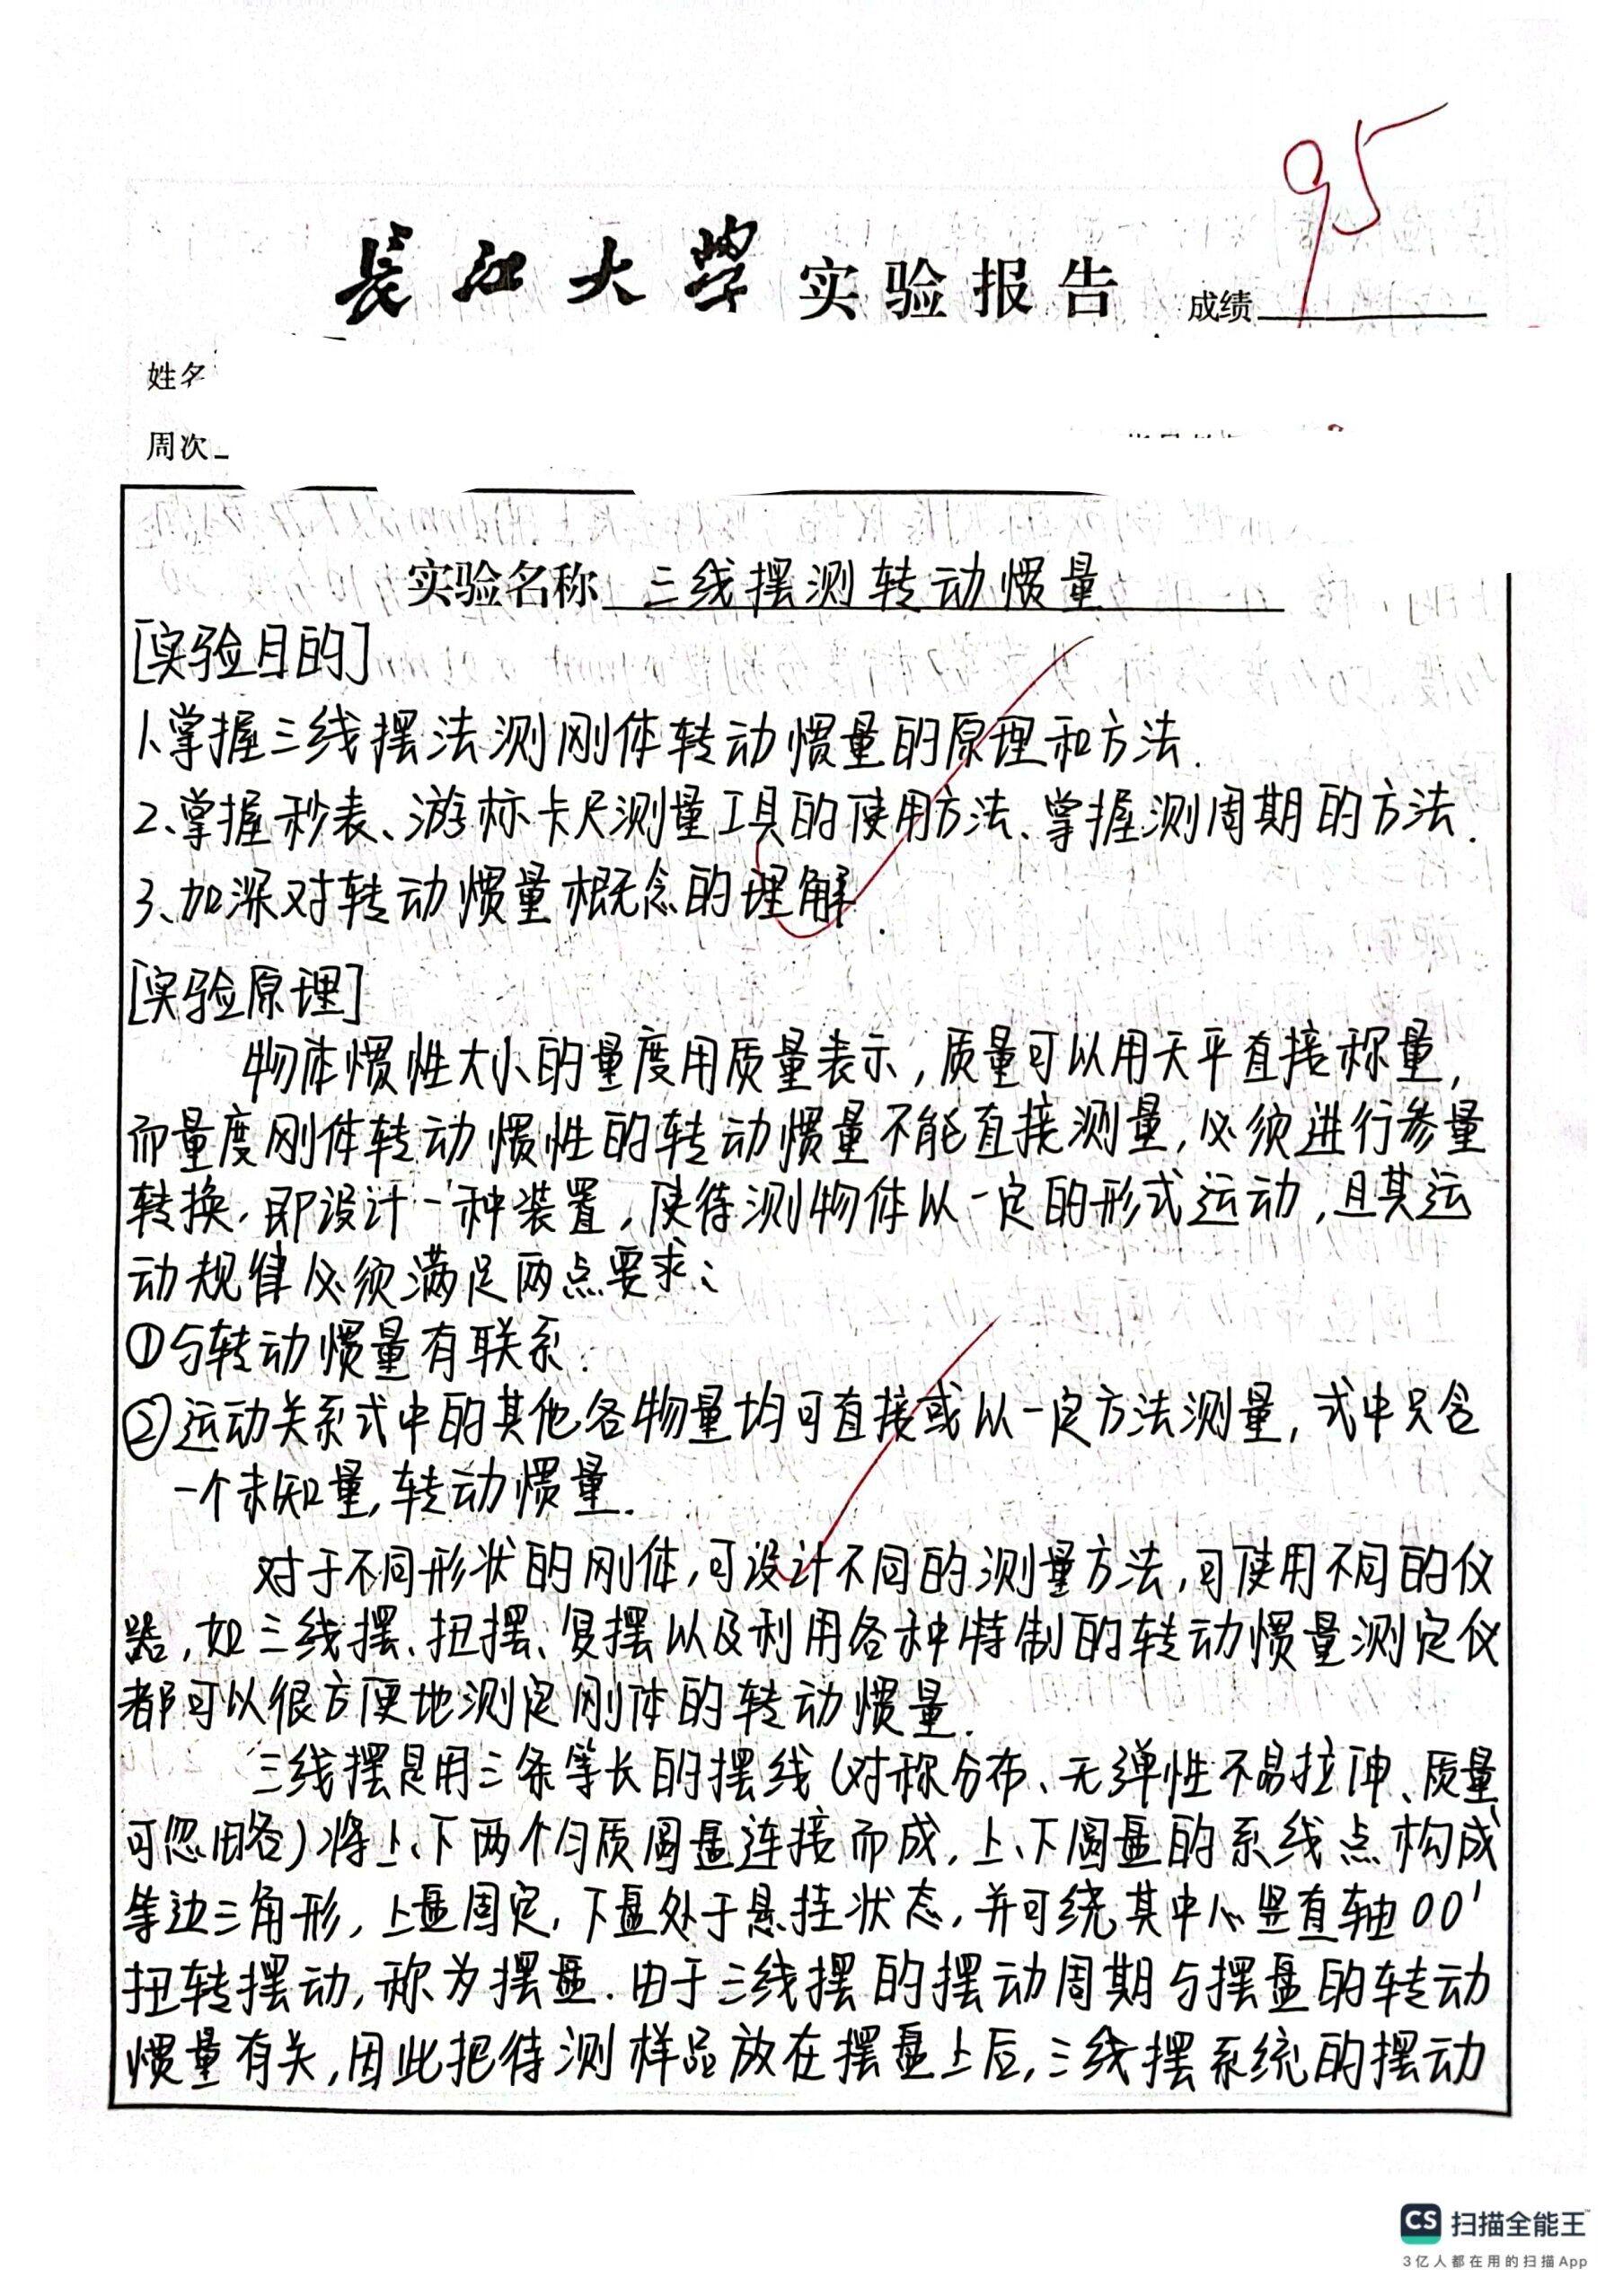 95
长江大学实验报告 成绩
姓名
周次
实验名称 三线摆测转动惯量
[实验目的]
1、掌握三线摆法测刚体转动惯量的原理和方法.
2、掌握秒表、游标卡尺测量工具的使用方法、掌握测周期的方法.
3、加深对转动惯量概念的理解.
[实验原理]
物体惯性大小的量度用质量表示,质量可以用天平直接称量,
而量度刚体转动惯性的转动惯量不能直接测量,必须进行参量
转换,即设计一种装置,使待测物体以一定的形式运动,且其运
动规律必须满足两点要求:
①与转动惯量有联系.
②运动关系式中的其他各物量均可直接或以一定方法测量,式中只含
一个未知量,转动惯量.
对于不同形状的刚体,可设计不同的测量方法,可使用不同的仪
器,如三线摆、扭摆、复摆以及利用各种特制的转动惯量测定仪
都可以很方便地测定刚体的转动惯量.
三线摆是用三条等长的摆线(对称分布、无弹性不易拉伸、质量
可忽略)将上、下两个匀质圆盘连接而成,上、下圆盘的系线点构成
等边三角形,上盘固定,下盘处于悬挂状态,并可绕其中心竖直轴OO'
扭转摆动,称为摆盘.由于三线摆的摆动周期与摆盘的转动
惯量有关,因此把待测样品放在摆盘上后,三线摆系统的摆动
CS 扫描全能王
3亿人都在用的扫描App